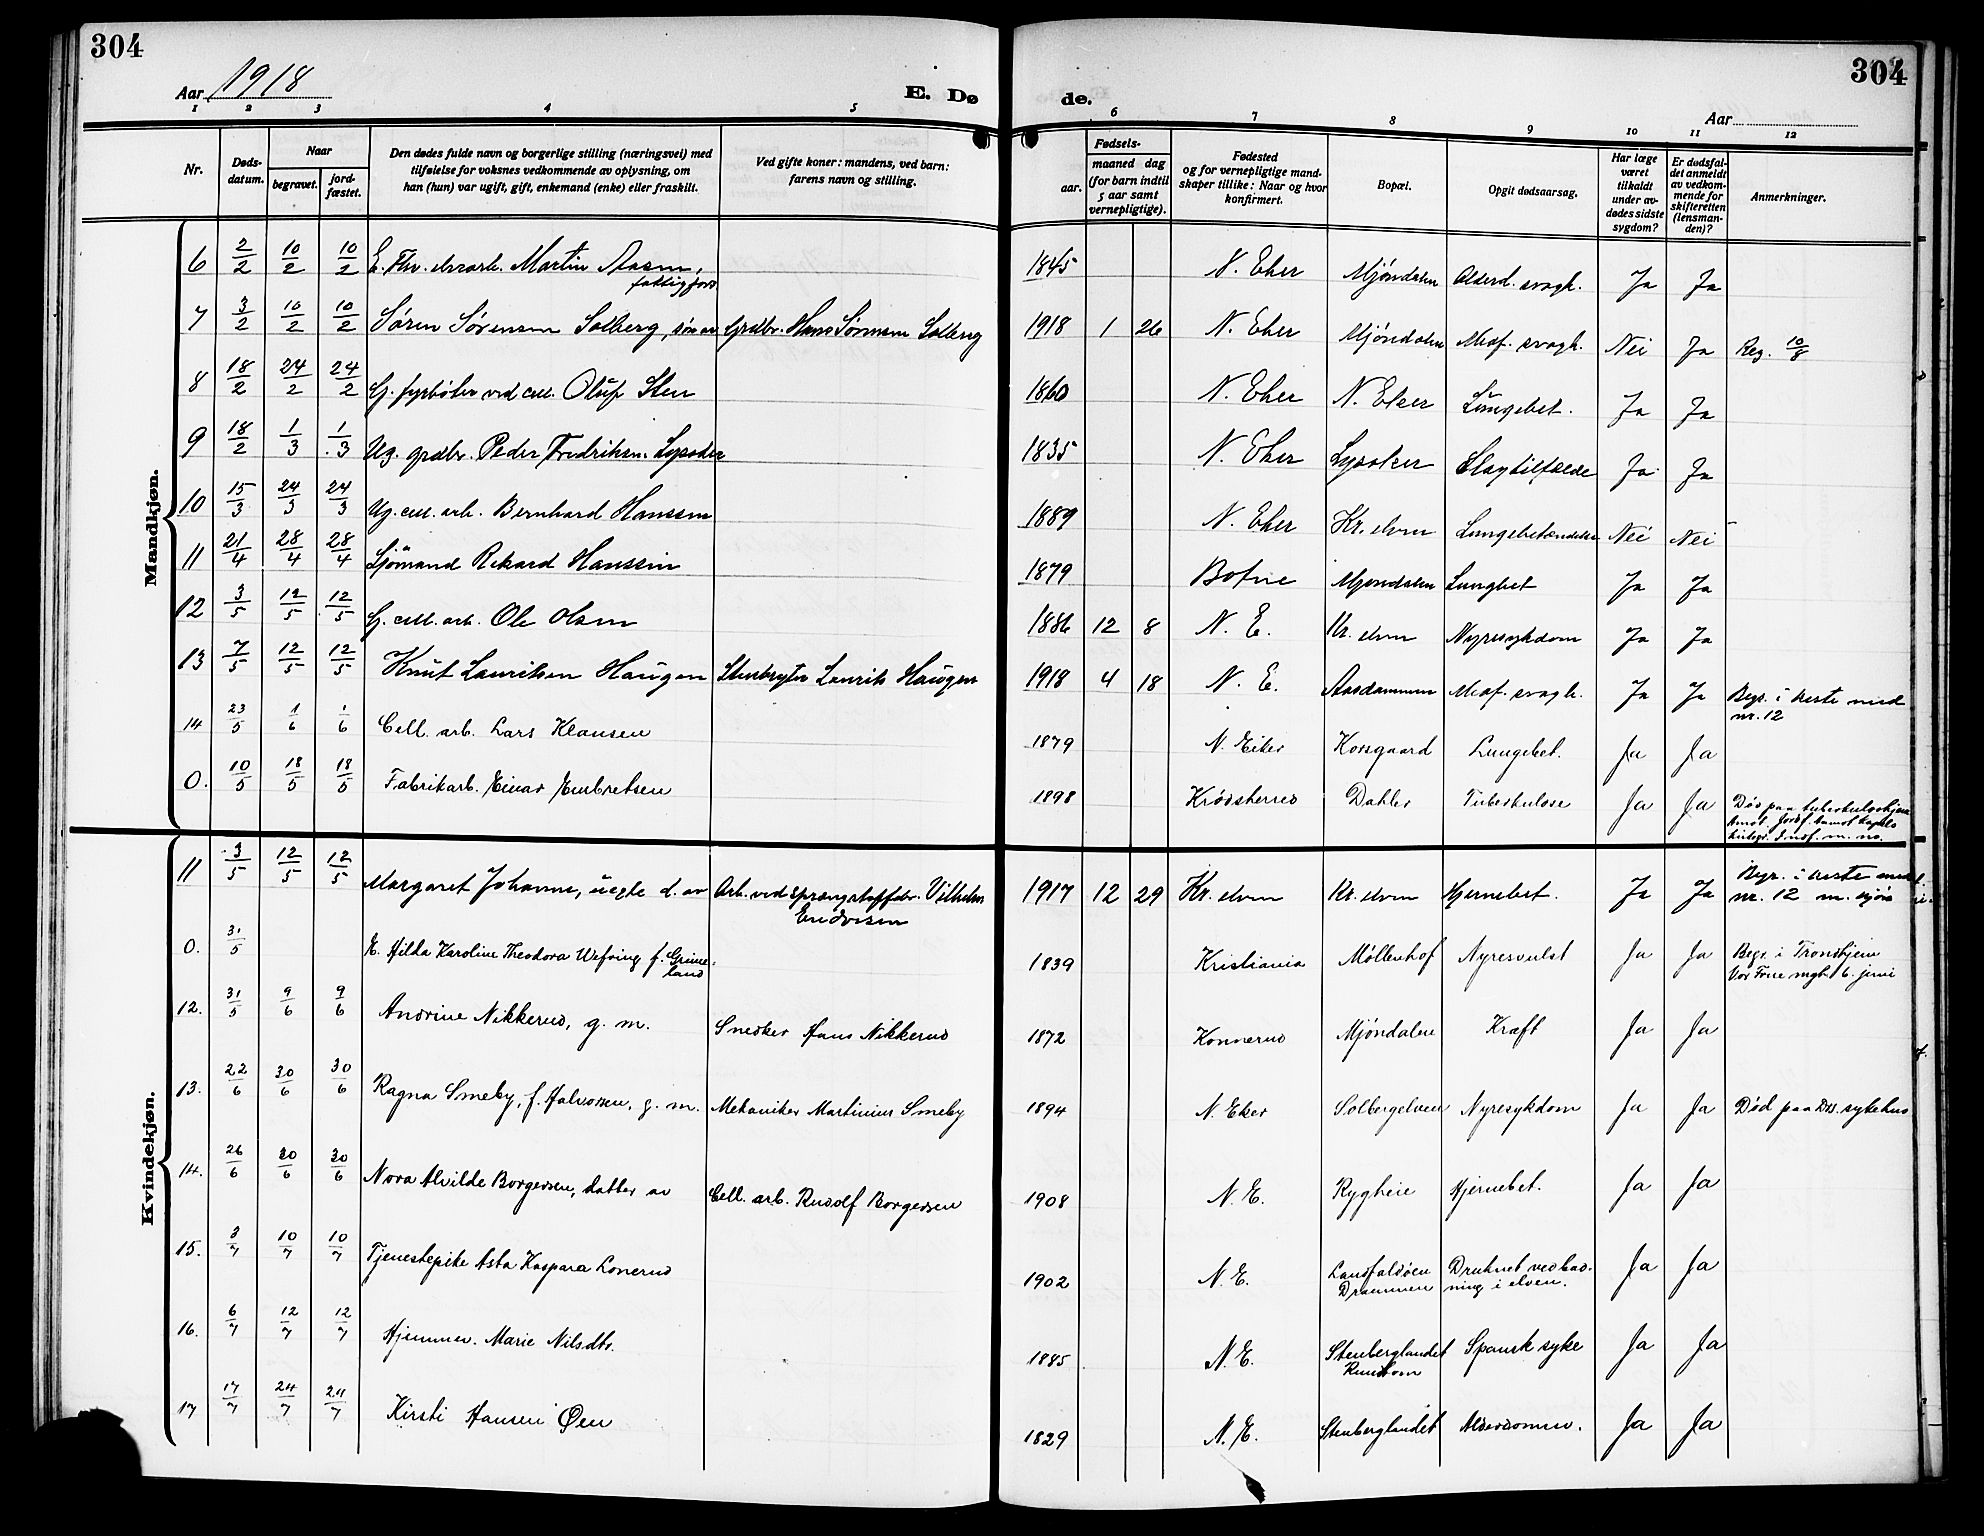 304
304
Aar 1918
E. Dø
de.
Aar
1 2 3 4 5 6 7 8 9 10 11 12
Nr.
Døds-
datum.
Naar
begravet.
jord-
fæstet.
Den dødes fulde navn og borgerlige stilling (næringsvei) med
tilføielse for voksnes vedkommende av oplysning, om
han (hun) var ugift, gift, enkemand (enke) eller fraskilt.
Ved gifte koner: mandens, ved barn:
farens navn og stilling.
Fødsels-
aar.
maaned dag
(for barn indtil
5 aar samt
vernepligtige).
Fødested
og for vernepligtige mand-
skaper tillike: Naar og hvor
konfirmert.
Bopæl.
Opgit dødsaarsag.
Har læge
været
tilkaldt
under av-
dødes sidste
sygdom?
Er dødsfal-
det anmeldt
av vedkom-
mende for
skifteretten
(lensman-
den)?
Anmerkninger.
Mandkjøn.
6 2/2 10/2 10/2 E. Martin Aasen, 1845 N. Eker Mjøndalen Alderd. svagh. Ja Ja
fattigfors
7 3/2 10/2 10/2 Søren Sørensen Solberg, søn av Grdbr. Hans Sørensen Solberg 1918 1 26 N. Eker Mjøndalen Medf. svagh. Nei Ja Reg. 10/8
8 18/2 24/2 24/2 G. fyrbøter ved cell. Oluf Sten 1860 N. Eker N. Eker Lungebet. Ja Ja
9 18/2 1/3 1/3 Ug. grdbr. Peder Fredriksen 1835 N. Eker Lysaker Slagtilfælde Ja Ja
10 15/3 24/3 24/3 Ug. cell. arb. Bernhard Hanssen 1889 N. Eker Kr. elven Lungebetændelse Nei Nei
11 21/4 28/4 28/4 Sjømand Rikard Hanssen 1879 Botne Mjøndalen Lungbet Ja Ja
12 3/5 12/5 12/5 G. cell. arb. Ole Olsen 1886 12 8 N. E. Kr. elven Nyresykdom Ja Ja
13 7/5 12/5 12/5 Knut Lauritsen Haugen Stenbryter Laurits Haugen 1918 4 18 N. E. Aasdammen Medf. svagh. Ja Ja Begr. i kiste med
nr. 12
14 23/5 1/6 1/6 Cell. arb. Lars Klausen 1879 N. Eiker Korsgaard Lungebet. Ja Ja
0. 10/5 18/5 18/5 Fabrikarb. Einar Embretsen 1898 Krødsherred Dahler Tuberkulose Ja Ja Død paa tuberkulosehjem
Kvindekjøn.
11 3/5 12/5 12/5 Margaret Johanne, uegte d. av Arb. ved sprængstoffabr. Vilhelm 1917 12 29 Kr. elven Kr. elven Hjernebet. Ja Ja Begr. i kiste med
nr. 12 m. kjøn
0. 31/5 E. Hilda Karoline Theodora Wefring f. Grime- 1839 Kristiania Møllenhof Nyresvulst Ja Ja Begr. i Trondhjem
land Vor Frue mgh. 6. juni
12. 31/5 9/6 9/6 Andrine Nikkerud, g. m. Snedker Hans Nikkerud 1872 Konnerud Mjøndalen Kræft Ja Ja
13. 22/6 30/6 30/6 Ragna Smeby, f. Halvorsen, g. m. Mekaniker Martinius Smeby 1894 N. Eker Solbergelven Nyresykdom Ja Ja Død paa Drs. sykehus
14. 26/6 30/6 30/6 Nora Alvilde Borgersen, datter av Cell. arb. Rudolf Borgersen 1908 N. E. Rygheie Hjernebet. Ja Ja
15. 3/7 10/7 10/7 Tjenestepike Asta Kaspara Lonerud 1902 N. E. Landfaldøen Druknet ved bad- Ja Ja
Drammen ning i elven.
16. 6/7 12/7 12/7 Hjemmev. Marie Nilsdtr. 1885 N. E. Stenberglandet Spansk syke Ja Ja
17 17/7 24/7 24/7 Kirsti Hansen Øen 1829 N. E. Stenberglandet Alderdomm. Ja Ja